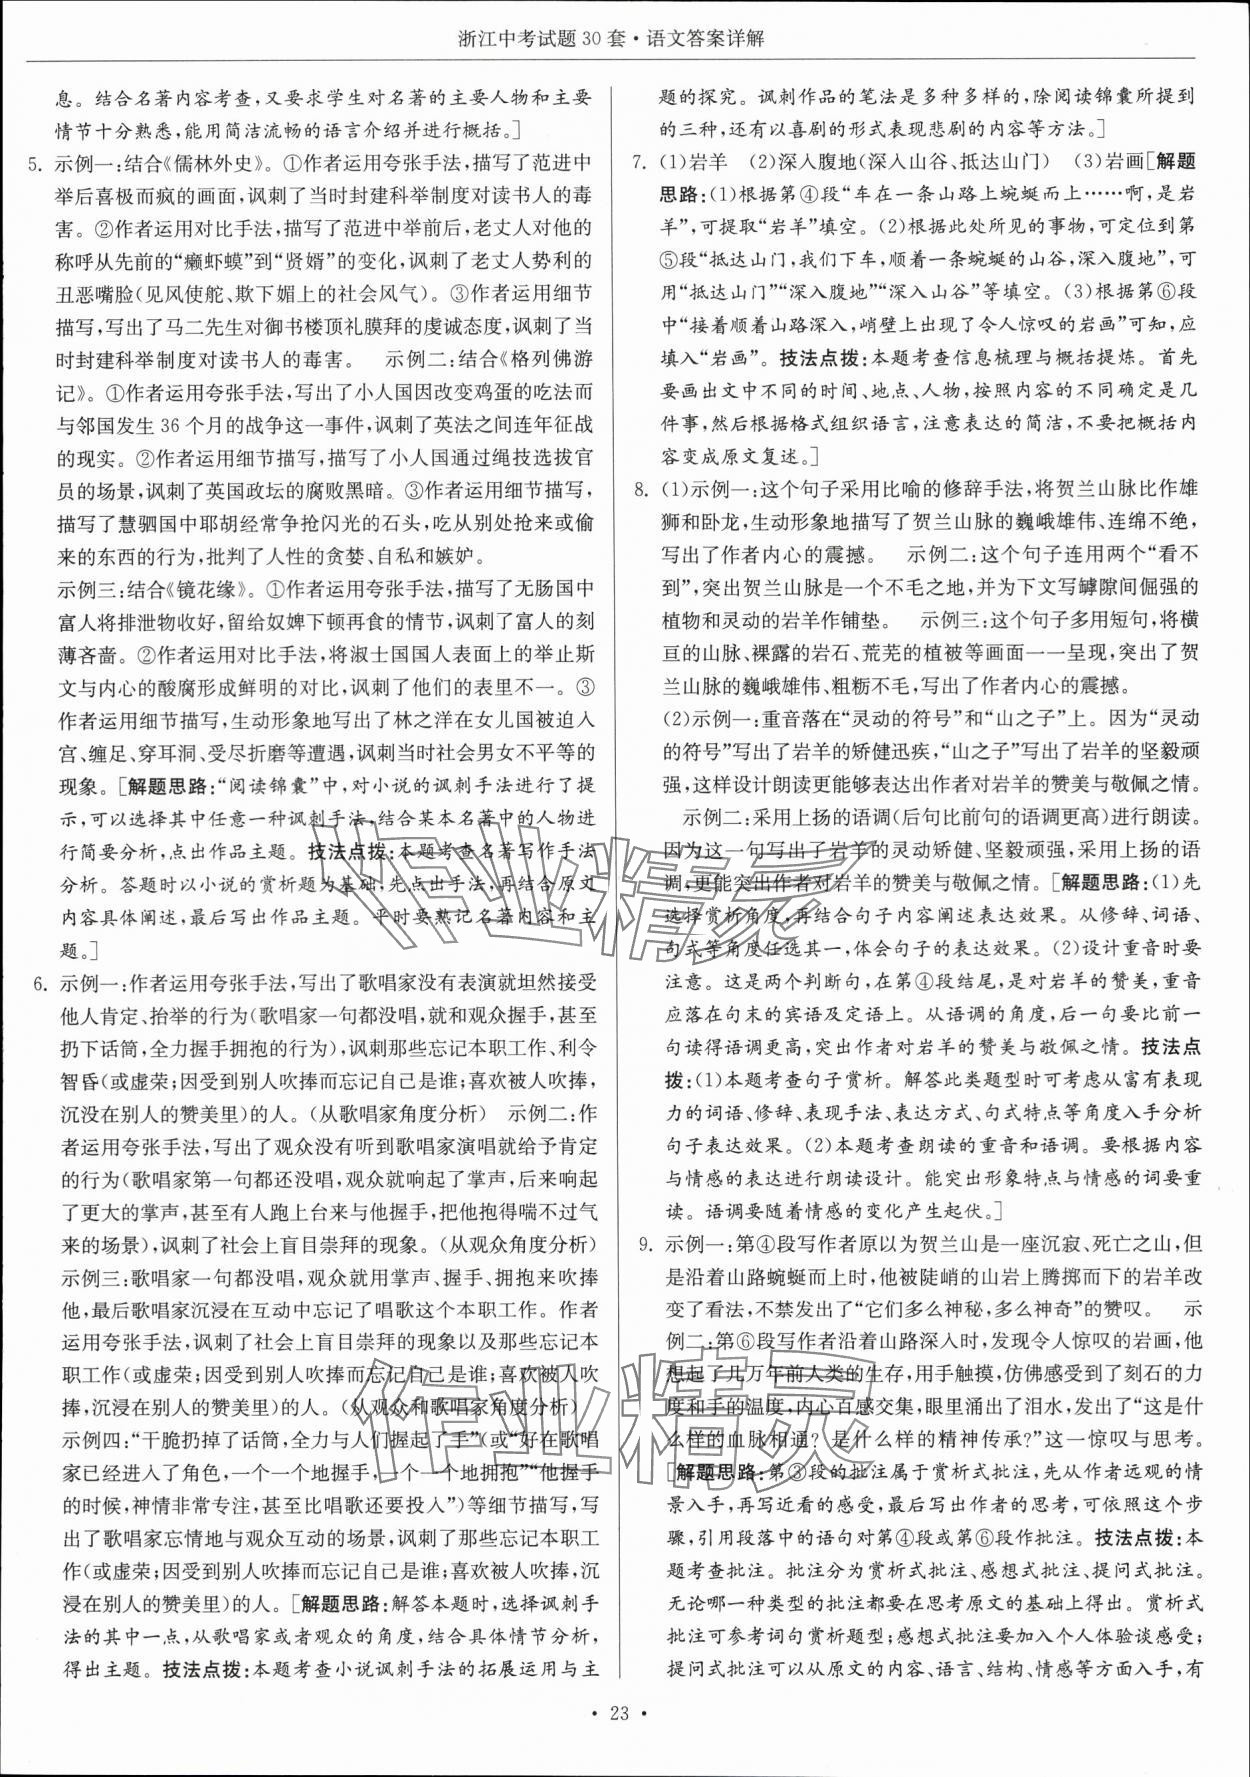 浙江中考试题30套·语文答案详解
息。结合名著内容考查,又要求学生对名著的主要人物和主要
情节十分熟悉,能用简洁流畅的语言介绍并进行概括。]
5. 示例一:结合《儒林外史》。①作者运用夸张手法,描写了范进中
举后喜极而疯的画面,讽刺了当时封建科举制度对读书人的毒
害。②作者运用对比手法,描写了范进中举前后,老丈人对他的
称呼从先前的“癞虾蟆”到“贤婿”的变化,讽刺了老丈人势利的
丑恶嘴脸(见风使舵、欺下媚上的社会风气)。③作者运用细节
描写,写出了马二先生对御书楼顶礼膜拜的虔诚态度,讽刺了当
时封建科举制度对读书人的毒害。 示例二:结合《格列佛游
记》。①作者运用夸张手法,写出了小人国因改变鸡蛋的吃法而
与邻国发生36个月的战争这一事件,讽刺了英法之间连年征战
的现实。②作者运用细节描写,描写了小人国通过绳技选拔官
员的场景,讽刺了英国政坛的腐败黑暗。③作者运用细节描写,
描写了慧骃国中耶胡经常争抢闪光的石头,吃从别处抢来或偷
来的东西的行为,批判了人性的贪婪、自私和嫉妒。
示例三:结合《镜花缘》。①作者运用夸张手法,描写了无肠国中
富人将排泄物收好,留给奴婢下顿再食的情节,讽刺了富人的刻
薄吝啬。②作者运用对比手法,将淑士国国人表面上的举止斯
文与内心的酸腐形成鲜明的对比,讽刺了他们的表里不一。③
作者运用细节描写,生动形象地写出了林之洋在女儿国被迫入
宫、缠足、穿耳洞、受尽折磨等遭遇,讽刺当时社会男女不平等的
现象。[解题思路:“阅读锦囊”中,对小说的讽刺手法进行了提
示,可以选择其中任意一种讽刺手法,结合某本名著中的人物进
行简要分析,点出作品主题。技法点拨:本题考查名著写作手法
分析。答题时以小说的赏析题为基础,先点出手法,再结合原文
内容具体阐述,最后写出作品主题。平时要熟记名著内容和主
题。]
6. 示例一:作者运用夸张手法,写出了歌唱家没有表演就坦然接受
他人肯定、抬举的行为(歌唱家一句都没唱,就和观众握手,甚至
扔下话筒,全力握手拥抱的行为),讽刺那些忘记本职工作、利令
智昏(或虚荣;因受到别人吹捧而忘记自己是谁;喜欢被人吹捧,
沉没在别人的赞美里)的人。(从歌唱家角度分析) 示例二:作
者运用夸张手法,写出了观众没有听到歌唱家演唱就给予肯定
的行为(歌唱家第一句都还没唱,观众就响起了掌声,后来响起
了更大的掌声,甚至有人跑上台来与他握手,把他抱得喘不过气
来的场景),讽刺了社会上盲目崇拜的现象。(从观众角度分析)
示例三:歌唱家一句都没唱,观众用掌声、握手、拥抱来吹捧
他,最后歌唱家沉浸在互动中忘记了唱歌这个本职工作。作者
运用夸张手法,讽刺了社会上盲目崇拜的现象以及那些忘记本
职工作(或虚荣;因受到别人吹捧而忘记自己是谁;喜欢被人吹
捧,沉浸在别人的赞美里)的人。(从观众和歌唱家角度分析)
示例四:“干脆扔掉了话筒,全力与人们握起了手”(或“好在歌唱
家已经进入了角色,一个一个地握手,一个一个地拥抱”“他握手
的时候,神情非常专注,甚至比唱歌还要投入”)等细节描写,写
出了歌唱家忘情地与观众互动的场景,讽刺了那些忘记本职工
作(或虚荣;因受到别人吹捧而忘记自己是谁;喜欢被人吹捧,沉
浸在别人的赞美里)的人。[解题思路:解答本题时,选择讽刺手
法的其中一点,从歌唱家或者观众的角度,结合具体情节分析,
得出主题。技法点拨:本题考查小说讽刺手法的拓展运用与主
题的探究。讽刺作品的笔法是多种多样的,除阅读锦囊所提到
的三种,还有以喜剧的形式表现悲剧的内容等方法。]
7. (1)岩羊 (2)深入腹地(深入山谷、抵达山门) (3)岩画[解题
思路:(1)根据第④段“车在一条山路上蜿蜒而上……啊,是岩
羊”,可提取“岩羊”填空。(2)根据此处所见的事物,可定位到第
⑤段“抵达山门,我们下车,顺着一条蜿蜒的山谷,深入腹地”,可
用“抵达山门”“深入腹地”“深入山谷”等填空。(3)根据第⑥段
中“接着顺着山路深入,峭壁上出现了令人惊叹的岩画”可知,应
填入“岩画”。技法点拨:本题考查信息梳理与概括提炼。首先
要画出文中不同的时间、地点、人物,按照内容的不同确定是几
件事,然后根据格式组织语言,注意表达的简洁,不要把概括内
容变成原文复述。]
8. (1)示例一:这个句子采用比喻的修辞手法,将贺兰山脉比作雄
狮和卧龙,生动形象地描写了贺兰山脉的巍峨雄伟、连绵不绝,
写出了作者内心的震撼。 示例二:这个句子连用两个“看不
到”,突出贺兰山脉是一个不毛之地,并为下文写罅隙间倔强的
植物和灵动的岩羊作铺垫。 示例三:这个句子多用短句,将横
亘的山脉、裸露的岩石、荒芜的植被等画面一一呈现,突出了贺
兰山脉的巍峨雄伟、粗粝不毛,写出了作者内心的震撼。
(2)示例一:重音落在“灵动的符号”和“山之子”上。因为“灵动
的符号”写出了岩羊的矫健迅疾,“山之子”写出了岩羊的坚毅顽
强,这样设计朗读更能够表达出作者对岩羊的赞美与敬佩之情。
示例二:采用上扬的语调(后句比前句的语调更高)进行朗读。
因为这一句写出了岩羊的灵动矫健、坚毅顽强,采用上扬的语
调,更能突出作者对岩羊的赞美与敬佩之情。[解题思路:(1)先
选择赏析角度,再结合句子内容阐述表达效果。从修辞、词语、
句式等角度任选其一,体会句子的表达效果。(2)设计重音时要
注意。这是两个判断句,在第④段结尾,是对岩羊的赞美,重音
应落在句末的宾语及定语上。从语调的角度,后一句要比前一
句读得语调更高,突出作者对岩羊的赞美与敬佩之情。技法点
拨:(1)本题考查句子赏析。解答此类题型时可考虑从富有表现
力的词语、修辞、表现手法、表达方式、句式特点等角度入手分析
句子表达效果。(2)本题考查朗读的重音和语调。要根据内容
与情感的表达进行朗读设计。能突出形象特点与情感的词要重
读。语调要随着情感的变化产生起伏。]
9. 示例一:第④段写作者原以为贺兰山是一座沉寂、死亡之山,但
是沿着山路蜿蜒而上时,他被陡峭的山岩上腾掷而下的岩羊改
变了看法,不禁发出了“它们多么神秘,多么神奇”的赞叹。 示
例二:第⑥段写作者沿着山路深入时,发现令人惊叹的岩画,他
想起了几万年前人类的生存,用手触摸,仿佛感受到了刻石的力
度和手的温度,内心百感交集,眼里涌出了泪水,发出了“这是什
么样的血脉相通?是什么样的精神传承?”这一惊叹与思考。
[解题思路:第③段的批注属于赏析式批注,先从作者远观的情
景入手,再写近看的感受,最后写出作者的思考,可依照这个步
骤,引用段落中的语句对第④段或第⑥段作批注。技法点拨:本
题考查批注。批注分为赏析式批注、感想式批注、提问式批注。
无论哪一种类型的批注都要在思考原文的基础上得出。赏析式
批注可参考词句赏析题型;感想式批注要加入个人体验谈感受;
提问式批注可以从原文的内容、语言、结构、情感等方面入手,有
• 23 •
作业精灵
作业精灵